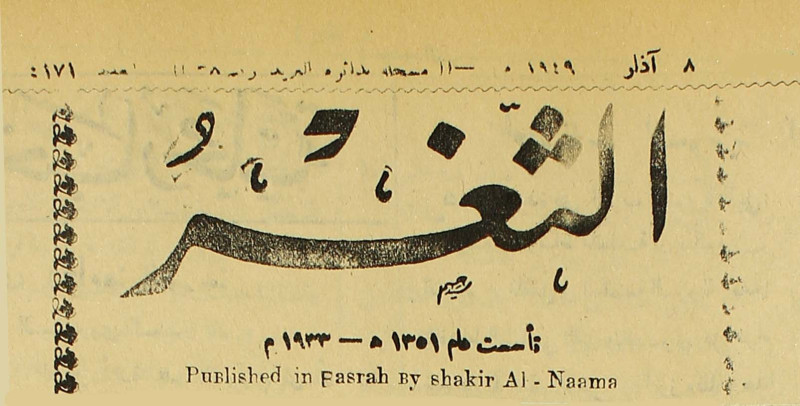 ٨ آذار ١٩٤٩ مسجلة بدائرة البريد العدد ٤١٧١
الثَّغر
تأسست عام ١٣٥١ ه — ١٩٣٣ م
Published in Fasrah By shakir Al - Naama